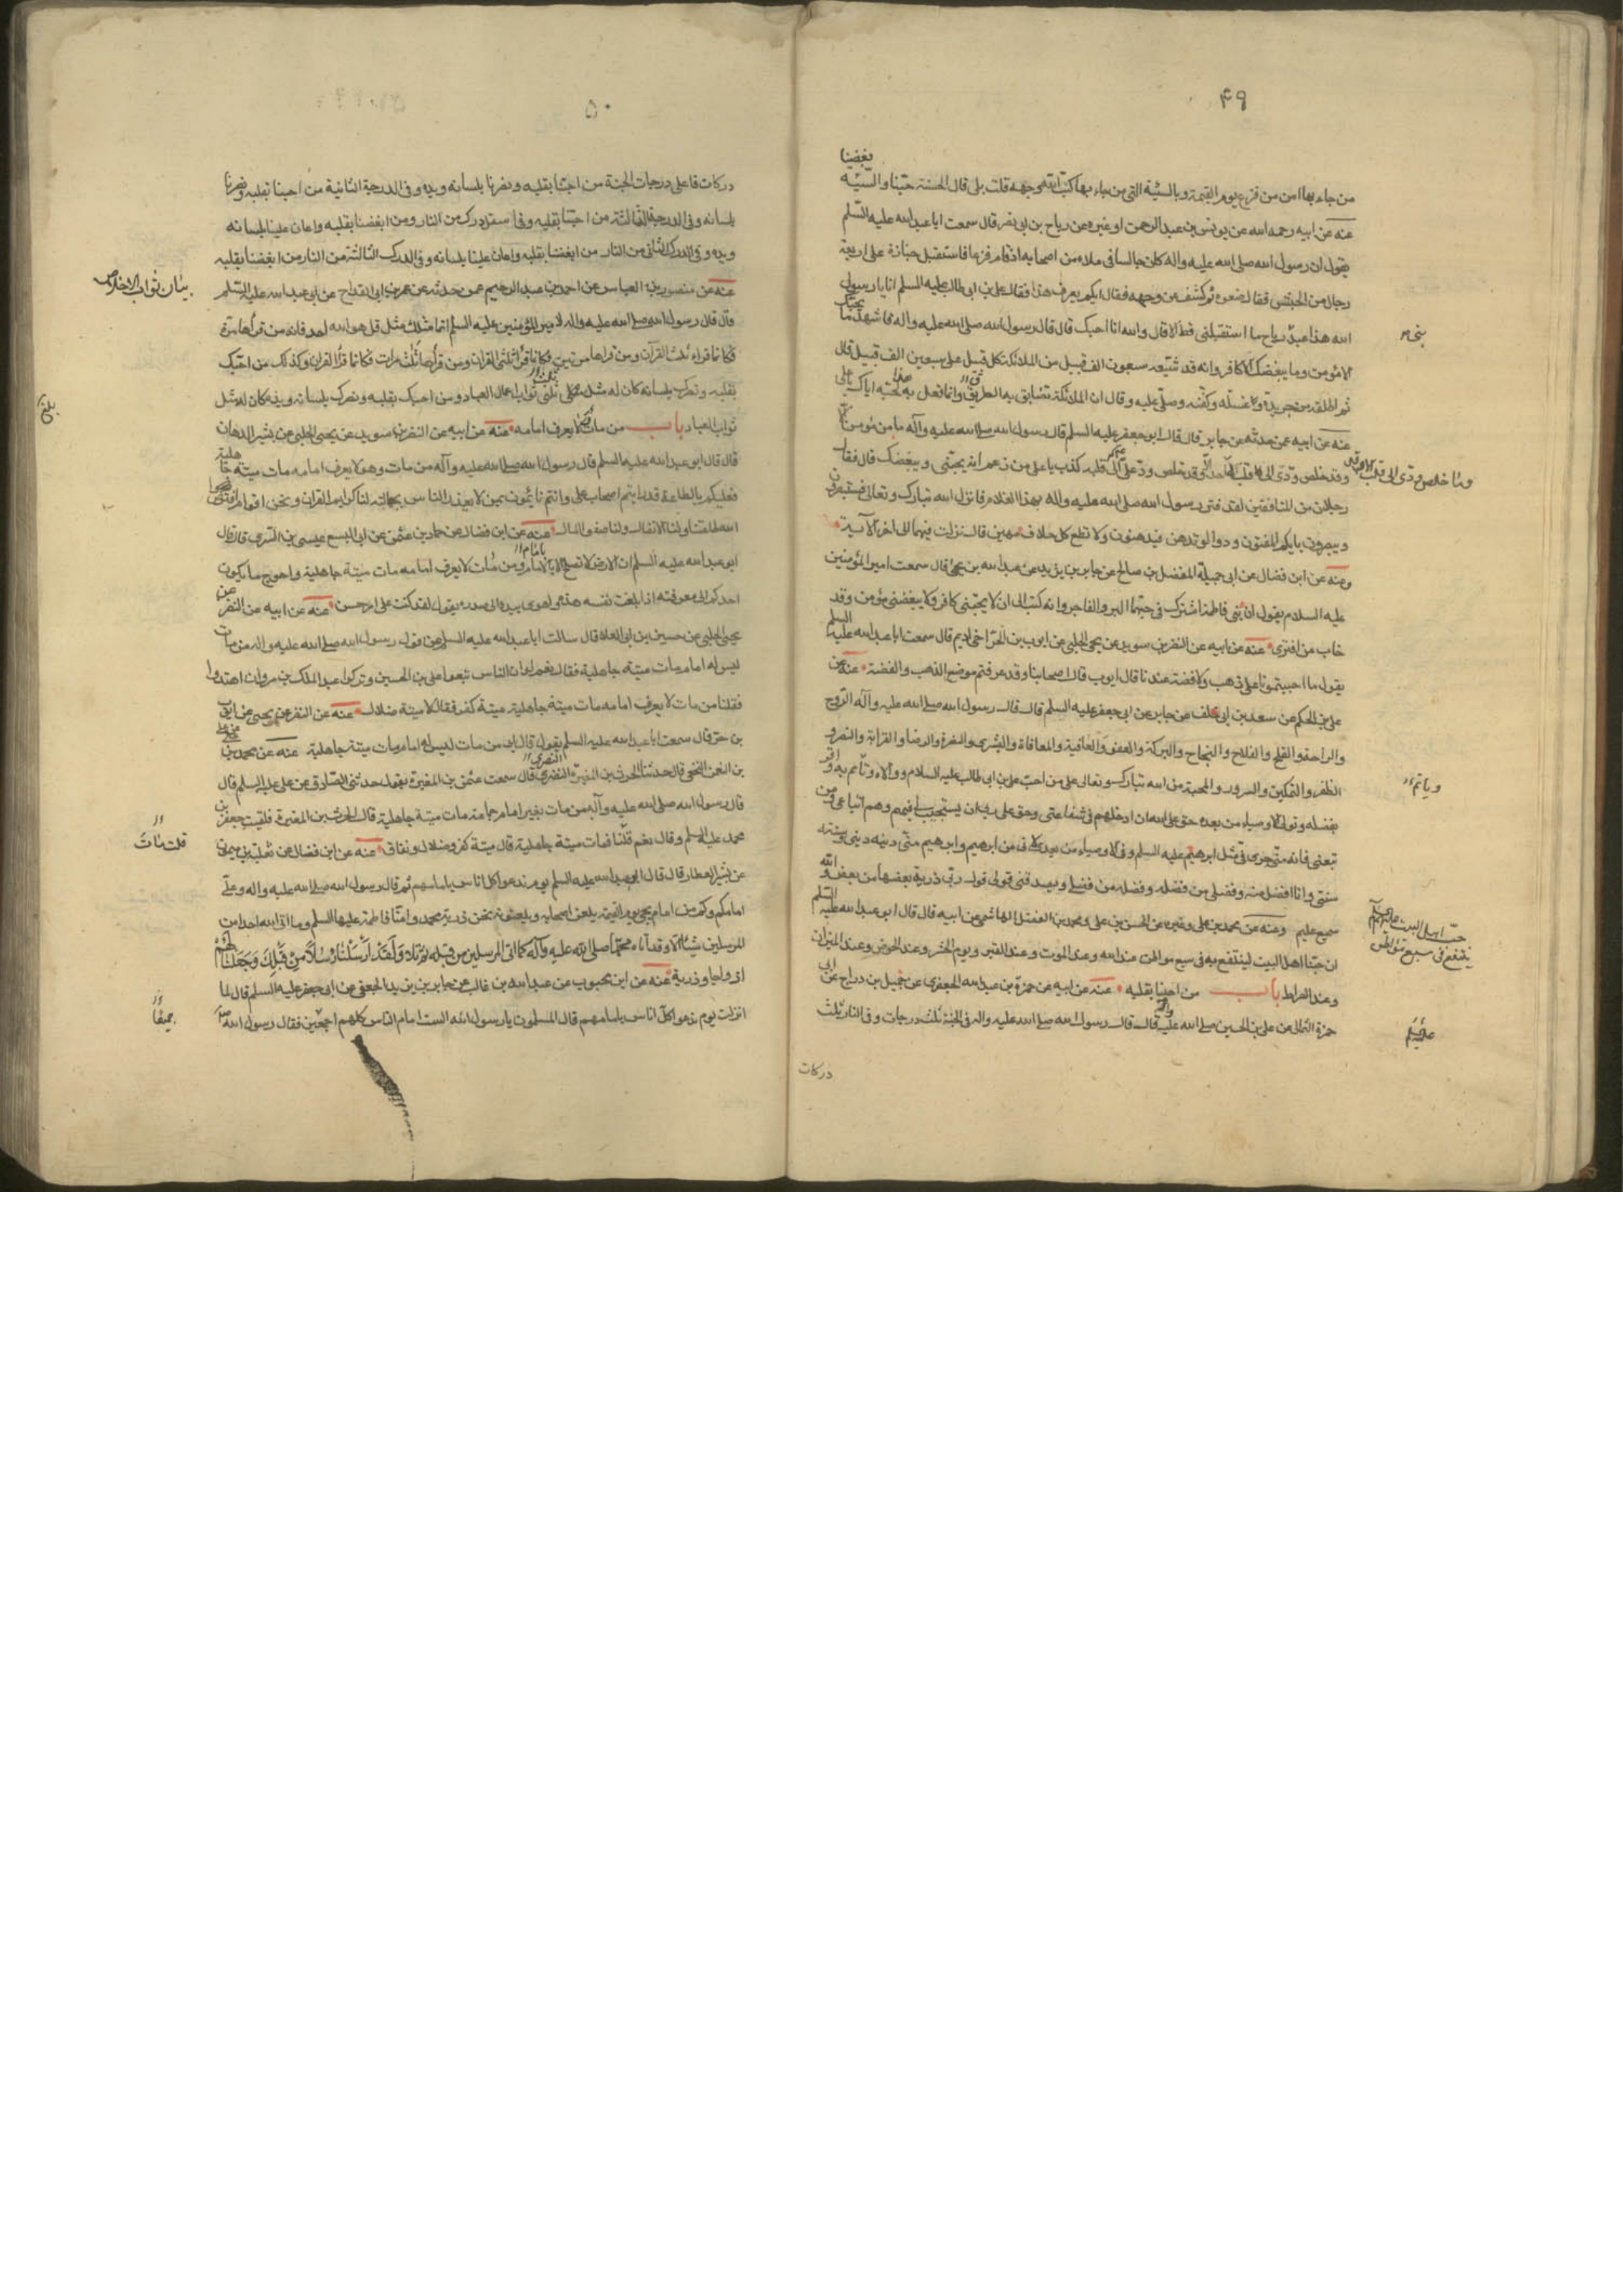 ۴۹
بغضنا
من جاء بها امن من فزع يوم القيمة وبالسيئة التى من جاء بها اكبه الله على وجهه قلت بلى قال الحسنة حبنا والسيئة
عنه عن ابيه رحمه الله عن يونس بن عبد الرحمن او غيره عن رياح بن ابى نصر قال سمعت ابا عبد الله عليه السلم
يقول ان رسول الله صلى الله عليه واله كان جالسا فى ملاء من اصحابه اذ قام فزعا فاستقبل جنازة على اربعة
رجال من الحبش فقال ضعوه ثم كشف عن وجهه فقال ايكم يعرف هذا فقال على بن ابى طالب عليه السلم انا يا رسول
الله هذا عبد رياح ما استقبلنى قط الا قال والله انا احبك قال قال رسول الله صلى الله عليه واله فاشهد ما يحبك
الا مؤمن وما يبغضك الا كافر وانه قد شيعه سبعون الف قبيل من الملائكة كل قبيل على سبعين الف قبيل قال
ثم اطلقه من جريدة وغسله وكفنه وصلى عليه وقال ان الملائكة تضايق به الطريق وانما فعل به هذا لحبه اياك يا على
عنه عن ابيه عمن حدثه عن جابر قال قال ابو جعفر عليه السلم قال رسول الله صلى الله عليه وآله ما من مؤمن الا
وقد خلص ودى الى قلبه وما خلص ودى الى قلب احد الا وقد خلص ود على الى قلبه كذب يا على من زعم انه يحبنى ويبغضك قال فقال
رجلان من المنافقين لقد فتن رسول الله صلى الله عليه واله بهذا الغلام فانزل الله تبارك وتعالى فستبصرون
ويبصرون بايكم المفتون ودوا لو تدهن فيدهنون ولا تطع كل حلاف مهين قال نزلت فيهما الى اخر الآية
وعنه عن ابن فضال عن ابى جميلة المفضل بن صالح عن جابر بن يزيد عن عبد الله بن يحيى قال سمعت امير المؤمنين
عليه السلام يقول ان ابنى فاطمة اشترك فى حبهما البر والفاجر وانه كتب الى ان لا يحبنى كافر ولا يبغضنى مؤمن وقد
خاب من افترى عنه عن ابيه عن النضر بن سويد عن يحيى الحلبى عن ايوب بن الحر اخى اديم قال سمعت ابا عبد الله عليه السلم
يقول ما احببتمونا على ذهب ولا فضة عندنا قال ايوب قال اصحابنا وقد عرفتم موضع الذهب والفضة عنه عن
على بن الحكم عن سعد بن ابى خلف عن جابر عن ابى جعفر عليه السلم قال قال رسول الله صلى الله عليه وآله الروح
والراحة والفلج والفلاح والنجاح والبركة والعفو والعافية والمعافاة والبشرى والنضرة والرضا والقرابة والنصر و
الظفر والتمكين والسرور والمحبة من الله تبارك وتعالى على من احب على بن ابى طالب عليه السلام ووالاه وائتم به واقر
بفضله وتولى الاوصياء من بعده حق على ان ادخلهم فى شفاعتى وحق على ربى ان يستجيب لى فيهم وهم اتباعى ومن
تبعنى فانه منى جرى فى مثل ابرهيم عليه السلم وفى الاوصياء من بعدى لانى من ابرهيم وابرهيم منى دينه دينى وسنته
سنتى وانا افضل منه وفضلى من فضله وفضله من فضلى ويصدق قولى قول ربى ذرية بعضها من بعض والله
سميع عليم وعنه عن محمد بن على وغيره عن الحسن بن على ومحمد بن الفضل الهاشمى عن ابيه قال قال ابو عبد الله عليه السلم
ان حبنا اهل البيت لينتفع به فى سبع مواطن عند الله وعند الموت وعند القبر ويوم الحشر وعند الحوض وعند الميزان
وعند الصراط باب من احبنا بقلبه عنه عن ابيه عن حمزة بن عبد الله الجعفرى عن جميل بن دراج عن ابى
حمزة الثمالى عن على بن الحسين صلى الله عليه قال قال رسول الله صلى الله عليه واله فى الجنة ثلث درجات وفى النار ثلث
دركات
وياتم
حب اهل البيت عليهم السلم
ينتفع فى سبع مواطن
عليه السلم
۵۰
دركات فاعلى درجات الجنة من احبنا بقلبه ونصرنا بلسانه ويده وفى الدرجة الثانية من احبنا بقلبه ونصرنا
بلسانه وفى الدرجة الثالثة من احبنا بقلبه وفى اسفل درك من النار ومن ابغضنا بقلبه واعان علينا بلسانه
ويده وفى الدرك الثانى من النار من ابغضنا بقلبه واعان علينا بلسانه وفى الدرك الثالثة من النار من ابغضنا بقلبه
عنه عن منصور بن العباس عن احمد بن عبد الرحيم عمن حدثه عن عمر بن ابى المقدام عن ابى عبد الله عليه السلم
قال قال رسول الله صلى الله عليه واله لامير المؤمنين عليه السلم انما مثلك مثل قل هو الله احد فانه من قرأها مرة
فكانما قراء ثلث القرآن ومن قراها مرتين فكانما قرا ثلثى القران ومن قرأها ثلث مرات فكانما قرأ القران وكذلك من احبك
بقلبه ونصرك بلسانه كان له مثل ثلثى ثواب اعمال العباد ومن احبك بقلبه ونصرك بلسانه ويده كان له مثل
ثواب العباد باب من مات لا يعرف امامه عنه عن ابيه عن النضر بن سويد عن يحيى الحلبى عن بشير الدهان
قال قال ابو عبد الله عليه السلم قال رسول الله صلى الله عليه وآله من مات وهو لا يعرف امامه مات ميتة جاهلية
فعليكم بالطاعة قد رايتم اصحاب على وانتم تاتمون بمن لا يعذر الناس بجهالته لنا كرايم القران ونحن اقوام افترض
الله طاعتنا ولنا الانفال ولنا صفو المال عنه عن ابن فضال عن حماد بن عثمن عن ابى اليسع عيسى بن السرى قال قال
ابو عبد الله عليه السلم ان الارض لا تصلح الا بالامام ومن مات لا يعرف امامه مات ميتة جاهلية واحوج ما يكون
احدكم الى معرفته اذا بلغت نفسه هذه واهوى بيده الى صدره يقول لقد كنت على امر حسن عنه عن ابيه عن النضر عن
يحيى الحلبى عن حسين بن ابى العلاء قال سالت ابا عبد الله عليه السلم عن قول رسول الله صلى الله عليه واله من مات
ليس له امام مات ميتة جاهلية فقال نعم لو ان الناس تبعوا على بن الحسين وتركوا عبد الملك بن مروان اهتدوا
فقلنا من مات لا يعرف امامه مات ميتة جاهلية ميتة كفر فقال لا ميتة ضلال عنه عن النضر عن يحيى عن ايوب
بن حر قال سمعت ابا عبد الله عليه السلم يقول قال ابى من مات ليس له امام مات ميتة جاهلية عنه عن محمد بن على
بن النعمن النخعى قال حدثنا الحرث بن المغيرة النضرى قال سمعت عثمن بن المغيرة يقول حدثنى الصادق عن على عليه السلم قال
قال رسول الله صلى الله عليه وآله من مات بغير امام جماعة مات ميتة جاهلية قال الحرث بن المغيرة فلقيت جعفر بن
محمد عليه السلم وقال نعم قلنا فمات ميتة جاهلية قال ميتة كفر وضلال ونفاق عنه عن ابن فضال عن ثعلبة بن ميمون
عن بشير العطار قال قال ابو عبد الله عليه السلم يوم ندعوا كل اناس بامامهم ثم قال رسول الله صلى الله عليه واله وعلى
امامكم وكم من امام يجئ يوم القيمة يلعن اصحابه ويلعنونه نحن ذرية محمد وامنا فاطمة عليها السلم وما اتى الله احدا من
المرسلين شيئا الا وقد آتاه محمدا صلى الله عليه وآله كما اتى المرسلين من قبله ثم تلا ولقد ارسلنا رسلا من قبلك وجعلنا لهم
ازواجا وذرية عنه عن ابن محبوب عن عبد الله بن غالب عن جابر بن يزيد الجعفى عن ابى جعفر عليه السلم قال لما
انزلت يوم ندعوا كل اناس بامامهم قال المسلمون يا رسول الله الست امام الناس كلهم اجمعين فقال رسول الله ص
قلت مات
جميعا
بلغ